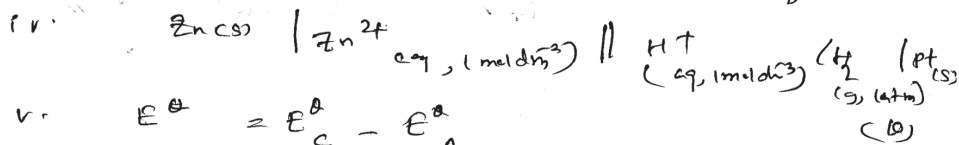 iv. Zn(s) | Zn²⁺ (aq, 1 moldm⁻³) || H⁺ (aq, 1moldm⁻³) (H₂ (g, 1atm) | pt (s)
(10)
v. E^θ = E^θ_C - E^θ_A